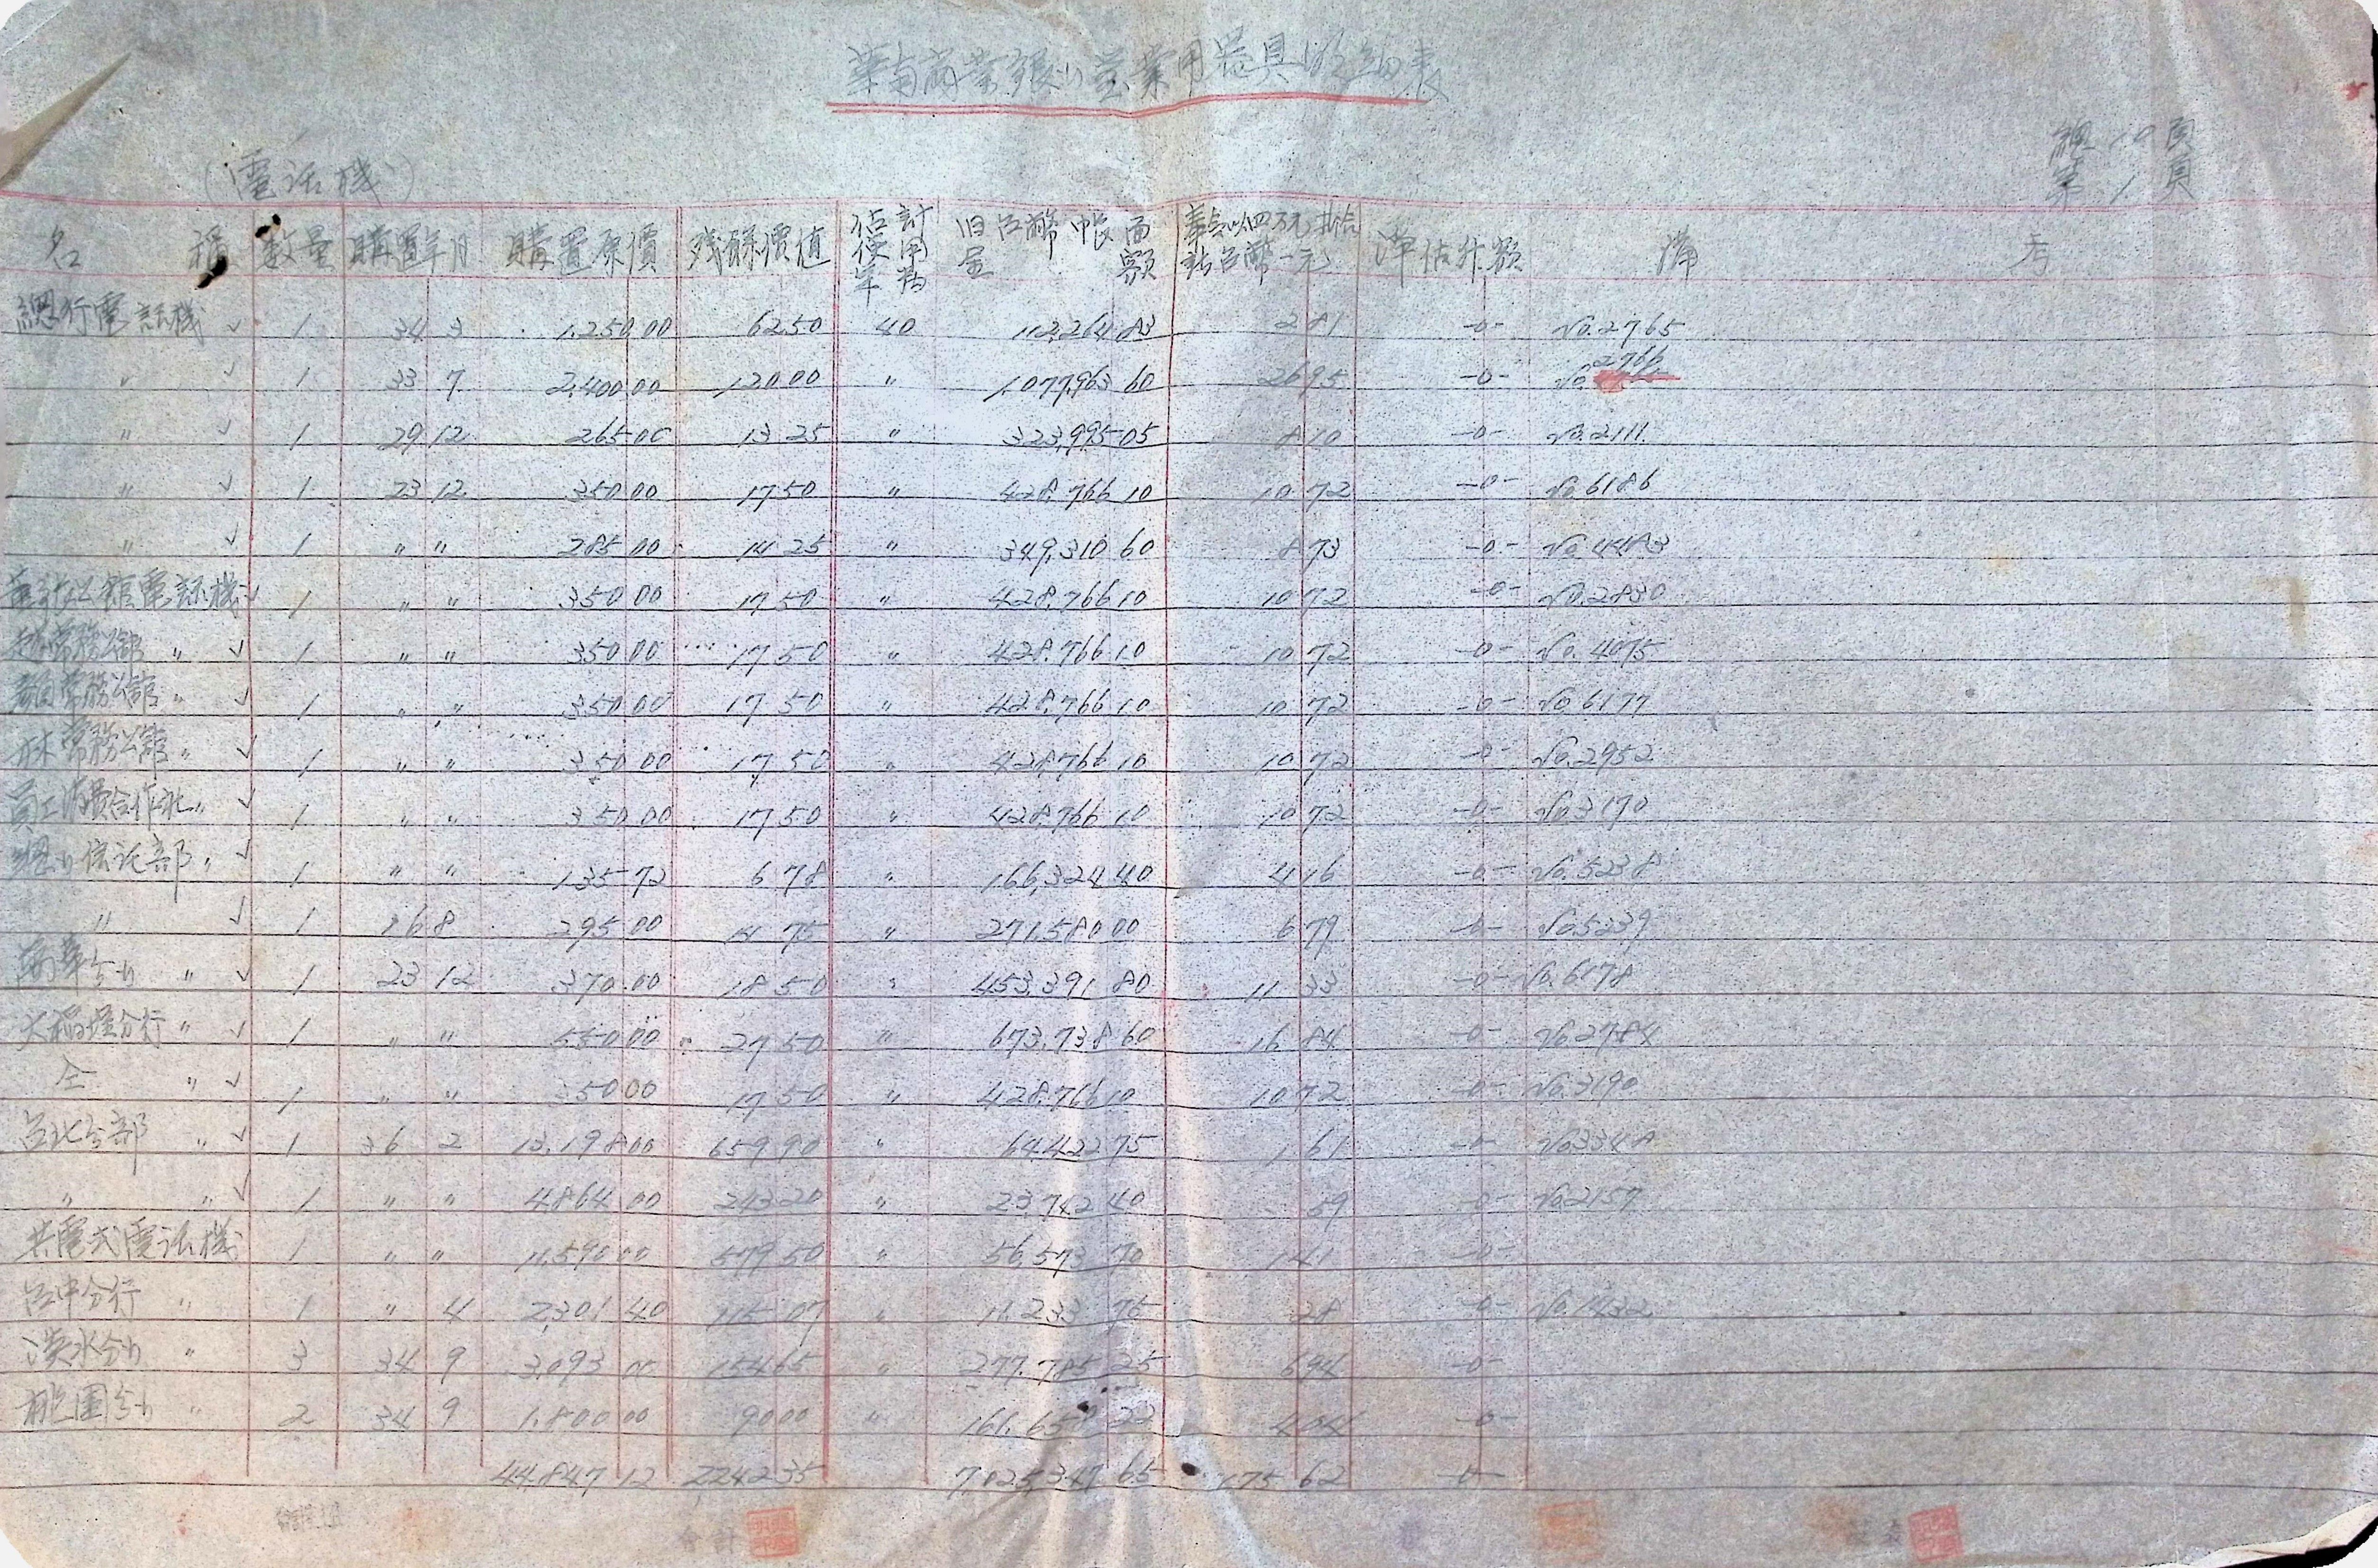 華南商業銀行營業用器具明細表
總10頁
第1頁
(電話機)
名稱 數量 購置年月 購置原價 殘餘價值 估計使用年萬 旧台幣帳面金額 奉令以四万元折合新台幣一元 淨估升額 備考
總行電話機 ✓ 1 34 3 1,250.00 62.50 40 112,264.83 2 81 -0- No.2765
〃 ✓ 1 33 7 2,400.00 120.00 〃 1,077,963.60 26 95 -0- No.2766
〃 ✓ 1 29 12 265.00 13.25 〃 323,995.05 8 10 -0- No.2111
〃 ✓ 1 23 12 350.00 17.50 〃 428,766.10 10 72 -0- No.6186
〃 ✓ 1 〃 〃 285.00 14.25 〃 349,310.60 8 73 -0- No.4483
公館電話機 ✓ 1 〃 〃 350.00 17.50 〃 428,766.10 10 72 -0- No.2830
常務公館 〃 ✓ 1 〃 〃 350.00 17.50 〃 428,766.10 10 72 -0- No.4075
常務公館 〃 ✓ 1 〃 〃 350.00 17.50 〃 428,766.10 10 72 -0- No.6177
林常務公館 〃 ✓ 1 〃 〃 350.00 17.50 〃 428,766.10 10 72 -0- No.2952
員工消費合作社 〃 ✓ 1 〃 〃 350.00 17.50 〃 428,766.10 10 72 -0- No.3170
總行信託部 〃 ✓ 1 〃 〃 135.72 6.78 〃 166,324.40 4 16 -0- No.5238
〃 ✓ 1 8 295.00 14.75 〃 271,580.00 6 79 -0- No.5239
萬華分行 〃 ✓ 1 23 12 370.00 18.50 〃 453,391.80 11 33 -0- No.6178
大稻埕分行 〃 ✓ 1 〃 〃 550.00 27.50 〃 673,738.60 16 84 -0- No.2784
仝 〃 ✓ 1 〃 〃 350.00 17.50 〃 428,766.10 10 72 -0- No.3190
台北分部 〃 ✓ 1 36 2 13,198.00 659.90 〃 64,422.75 1 61 -0- No.3348
〃 〃 ✓ 1 〃 〃 4,864.00 243.20 〃 23,742.40 59 -0- No.2157
共電式電話機 1 〃 〃 11,590.00 579.50 〃 56,573.70 1 41 -0-
台中分行 〃 1 〃 4 2,301.40 115.07 〃 11,233.75 28 -0- No.1432
淡水分行 〃 3 34 9 3,093.00 154.65 〃 277,785.25 6 94 -0-
桃園分行 〃 2 34 9 1,800.00 90.00 〃 161,658.22 4 04 -0-
44,847.12 2,242.35 7,025,347.65 175 62 -0-
會計